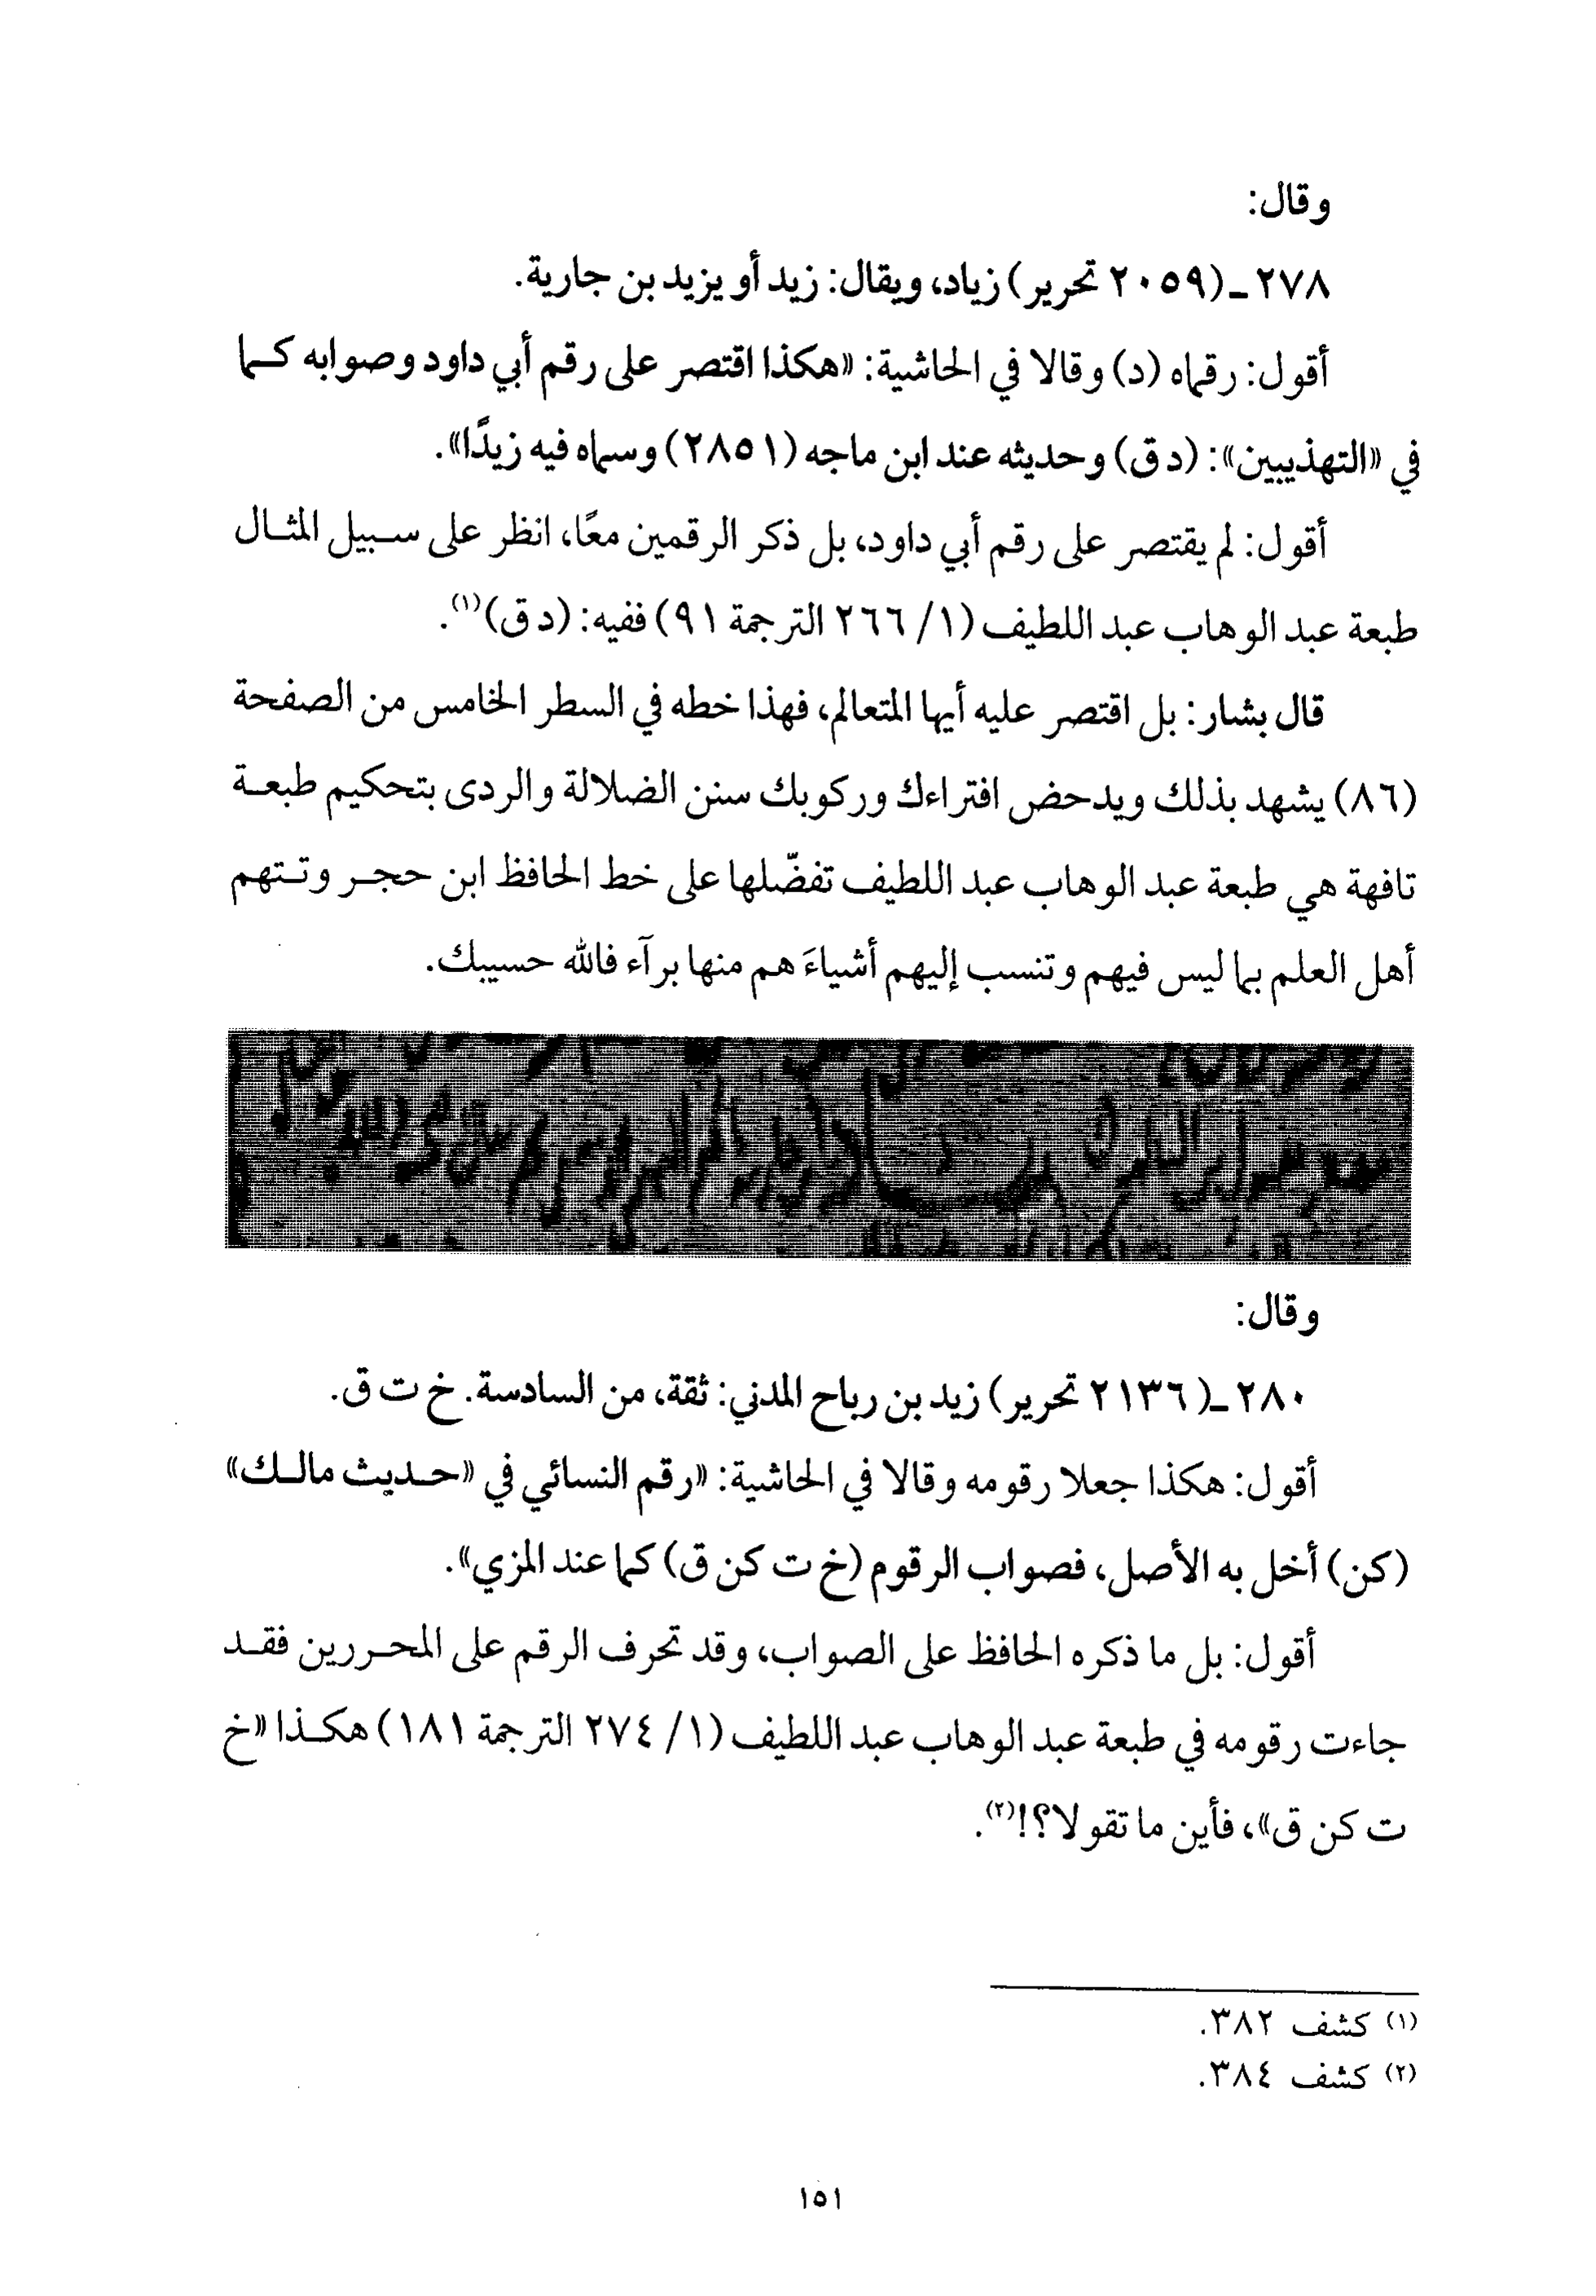 وقال:
٢٧٨ـ(٢٠٥٩ تحرير) زياد، ويقال: زيد أو يزيد بن جارية.
أقول: رقماه (د) وقالا في الحاشية: «هكذا اقتصر على رقم أبي داود وصوابه كـما
في «التهذيبين»: (د ق) وحديثه عند ابن ماجه (٢٨٥١) وسماه فيه زيدًا».
أقول: لم يقتصر على رقم أبي داود، بل ذكر الرقمين معًا، انظر على سـبيل المثـال
طبعة عبد الوهاب عبد اللطيف (١/ ٢٦٦ الترجمة ٩١) ففيه: (د ق)(١).
قال بشار: بل اقتصر عليه أيها المتعالم، فهذا خطه في السطر الخامس من الصفحة
(٨٦) يشهد بذلك ويدحض افتراءك وركوبك سنن الضلالة والردى بتحكيم طبعـة
تافهة هي طبعة عبد الوهاب عبد اللطيف تفضّلها على خط الحافظ ابن حجـر وتـتهم
أهل العلم بما ليس فيهم وتنسب إليهم أشياءَ هم منها برآء فالله حسيبك.
وقال:
٢٨٠ـ(٢١٣٦ تحرير) زيد بن رباح المدني: ثقة، من السادسة. خ ت ق.
أقول: هكذا جعلا رقومه وقالا في الحاشية: «رقم النسائي في «حـديث مالـك»
(كن) أخل به الأصل، فصواب الرقوم (خ ت كن ق) كما عند المزي».
أقول: بل ما ذكره الحافظ على الصواب، وقد تحرف الرقم على المحـررين فقـد
جاءت رقومه في طبعة عبد الوهاب عبد اللطيف (١/ ٢٧٤ الترجمة ١٨١) هكـذا «خ
ت كن ق»، فأين ما تقولا؟!(٢).
(١) كشف ٣٨٢.
(٢) كشف ٣٨٤.
١٥١